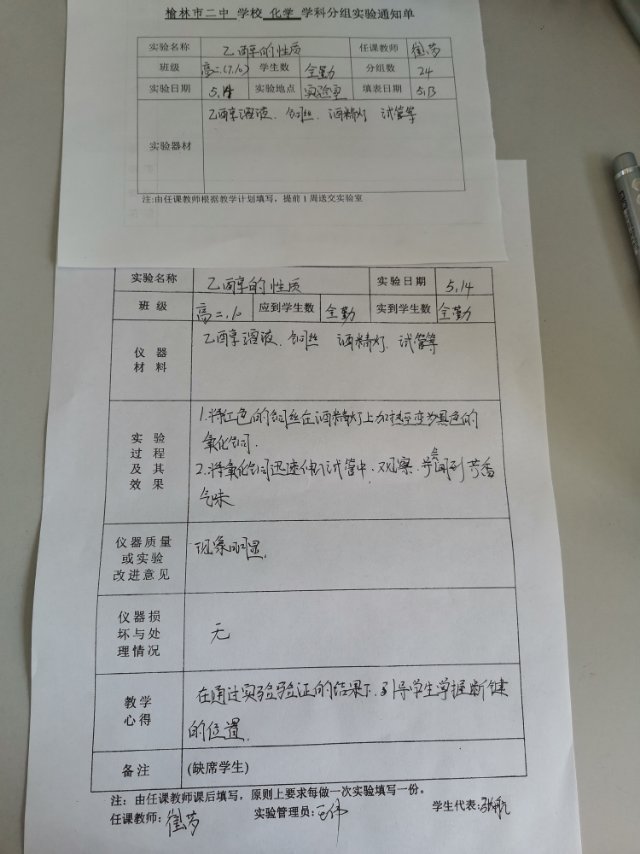 榆林市二中 学校 化学 学科分组实验通知单
实验名称 乙醇的性质 任课教师
班级 高二.(7.10) 学生数 全勤 分组数 24
实验日期 5.14 实验地点 实验室 填表日期 5.13
实验器材 乙醇溶液、铜丝、酒精灯 试管等
注:由任课教师根据教学计划填写，提前1周送交实验室
实验名称 乙醇的性质 实验日期 5.14
班 级 高二.10 应到学生数 全勤 实到学生数 全勤
仪器材料 乙醇溶液、铜丝 酒精灯、试管等
实验过程及其效果
1.将红色的铜丝在酒精灯上加热至变为黑色的
氧化铜.
2.将氧化铜迅速伸入试管中.观察.会闻到芳香
气味
仪器质量或实验改进意见 现象明显.
仪器损坏与处理情况 无
教学心得
在通过实验验证的结果下.引导学生掌握断键
的位置.
备注 (缺席学生)
注：由任课教师课后填写，原则上要求每做一次实验填写一份。
任课教师: 实验管理员:王伟 学生代表:张